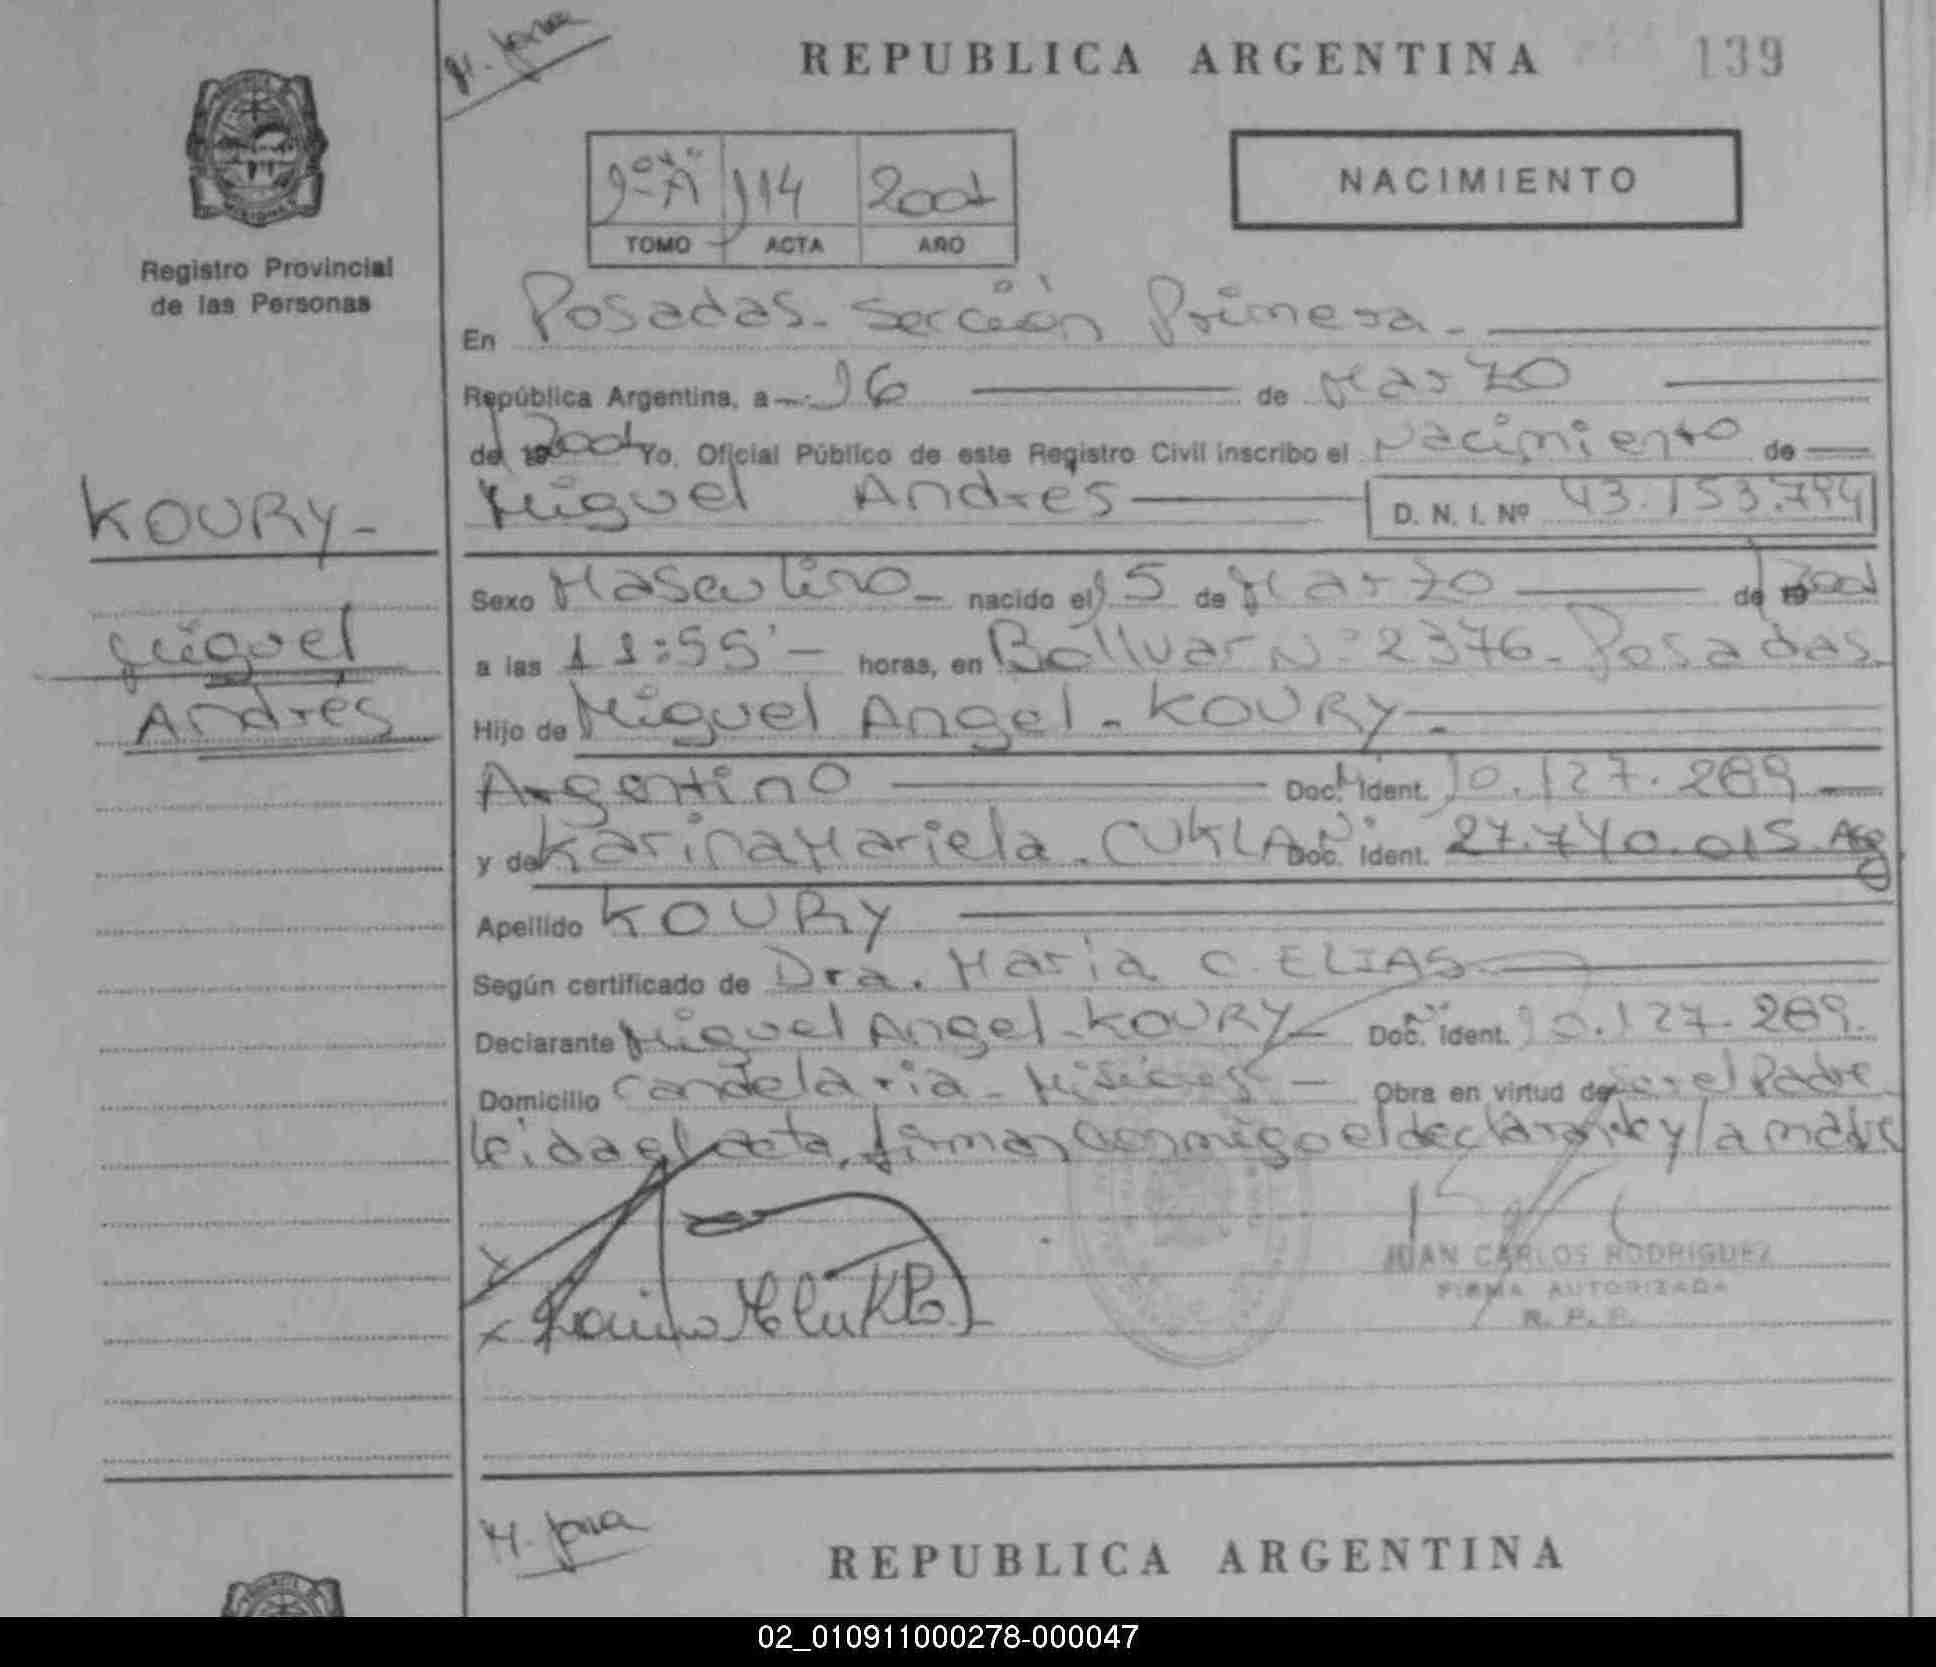 M. Jana
REPUBLICA ARGENTINA
139
9º "A" 114 2001
TOMO ACTA AÑO
NACIMIENTO
Registro Provincial
de las Personas
En Posadas - Sección Primera -
República Argentina, a 16 de Marzo
de 2001 Yo, Oficial Público de este Registro Civil inscribo el Nacimiento de
Miguel Andrés D. N. I. Nº 43.153.794
KOURY -
Miguel
Andrés
Sexo Masculino - nacido el 15 de Marzo de 2001
a las 11:55' - horas, en Bolívar Nº 2376 - Posadas
Hijo de Miguel Angel - KOURY -
Argentino Doc. Ident. 10.127.289
y de Karina Mariela - CUKLA Doc. Ident. 27.740.015. Arg
Apellido KOURY
Según certificado de Dra. María C. ELIAS
Declarante Miguel Angel - KOURY Doc. Ident. 10.127.289.
Domicilio Candelaria - Misiones - Obra en virtud de ser el Padre
leida el acta, firman conmigo el declarante y la madre
JUAN CARLOS RODRIGUEZ
FIRMA AUTORIZADA
R. P. P.
M. Jana
REPUBLICA ARGENTINA
02_010911000278-000047